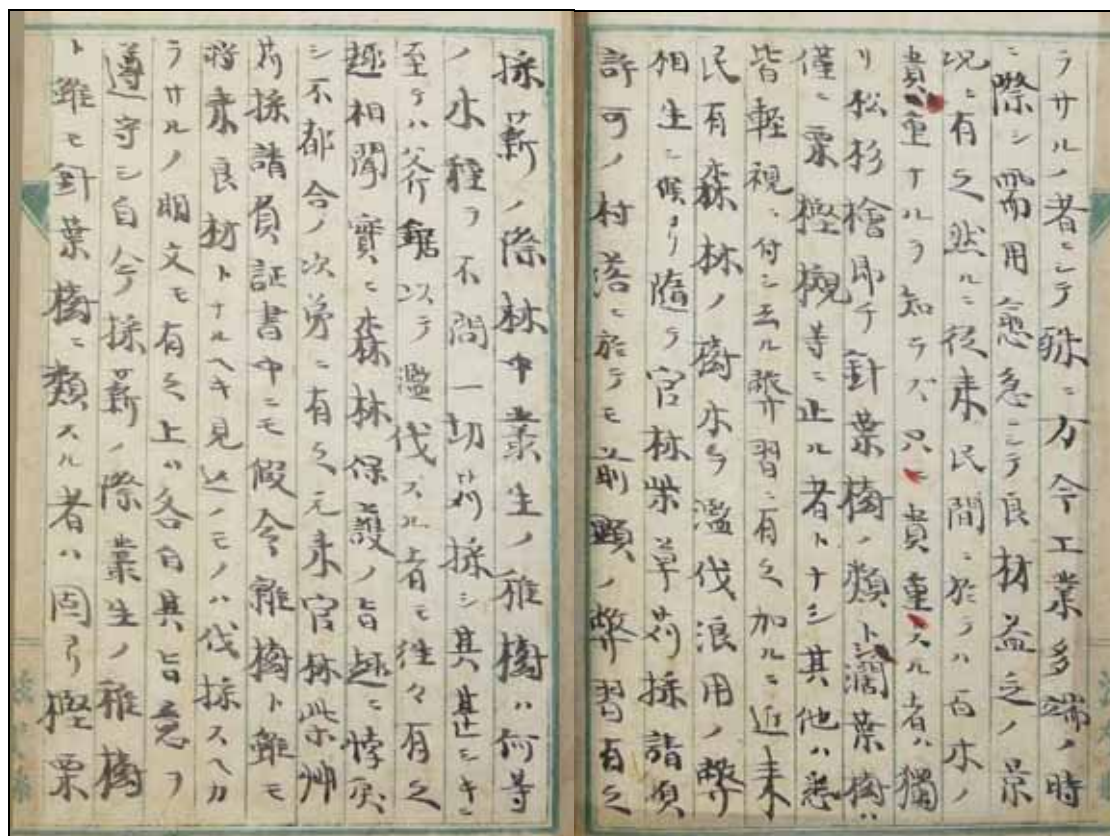 ラサルノ者ニシテ殊ニ方今工業多端ノ時
ニ際シ需用愈急ニシテ良材益乏ノ景
况ニ有之然ルニ従来民間ニ於テハ百木ノ
貴重ナルヲ知ラズ只ニ貴重スル者ハ獨
リ松杉檜即チ針葉樹ノ類トシ濶葉樹ハ
僅ニ栗樫槻等ニ止ル者トナシ其他ハ悉
皆軽視ニ付シ去ル弊習ニ有之加ルニ近来
民有森林ノ樹木ヲ濫伐浪用ノ弊
相生シ候ヨリ隨テ官林柴草苅採請負
許可ノ村落ニ於テモ前顕ノ弊習有之
採薪ノ際林中叢生ノ稚樹ハ何等
ノ木種ヲ不問一切苅採シ其甚シキニ
至テハ斧鋸以テ濫伐スル者モ往々有之
趣相聞實ニ森林保護ノ旨趣ニ悖戻
シ不都合ノ次第ニ有之元来官林柴艸
苅採請負証書中ニモ假令雜樹ト雖モ
将来良材トナルヘキ見込ノモノハ伐採スヘカ
ラサルノ明文モ有之上ハ各自其旨意ヲ
遵守シ自今採薪ノ際叢生ノ稚樹
ト雖モ針葉樹ニ類スル者ハ固ヨリ樫栗